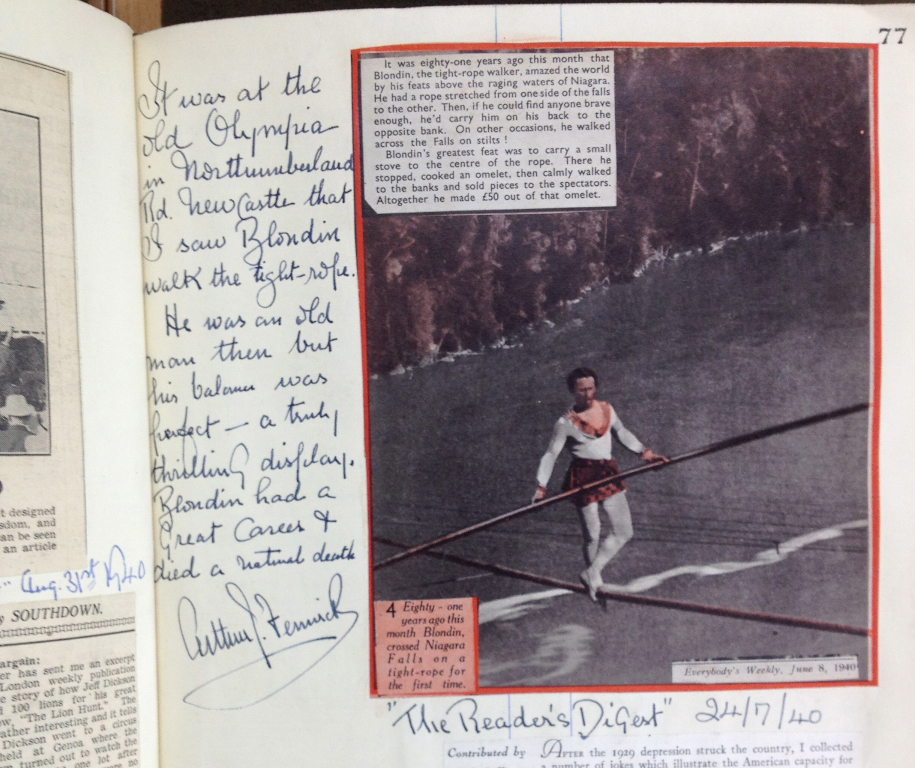 77
It was at the
old Olympia
in Northumberland
Rd. Newcastle that
I saw Blondin
walk the tight-rope.
He was an old
man then but
his balance was
perfect — a truly
thrilling display.
Blondin had a
Great Career &
died a natural death
Arthur J. Fenwick
It was eighty-one years ago this month that
Blondin, the tight-rope walker, amazed the world
by his feats above the raging waters of Niagara.
He had a rope stretched from one side of the falls
to the other. Then, if he could find anyone brave
enough, he'd carry him on his back to the
opposite bank. On other occasions, he walked
across the Falls on stilts !
Blondin's greatest feat was to carry a small
stove to the centre of the rope. There he
stopped, cooked an omelet, then calmly walked
to the banks and sold pieces to the spectators.
Altogether he made £50 out of that omelet.
4 Eighty - one
years ago this
month Blondin,
crossed Niagara
Falls on a
tight-rope for
the first time.
Everybody's Weekly, June 8, 1940
"The Reader's Digest" 24/7/40
Contributed by
AFTER the 1929 depression struck the country, I collected
a number of jokes which illustrate the American capacity for
t designed
sdom, and
an be seen
an article
" Aug. 31st 1940
y SOUTHDOWN.
argain:
er has sent me an excerpt
London weekly publication
e story of how Jeff Dickson
d 100 lions for his great
ow, "The Lion Hunt." The
ather interesting and it tells
Dickson went to a circus
held at Genoa where the
n turned out to watch the
one lot after